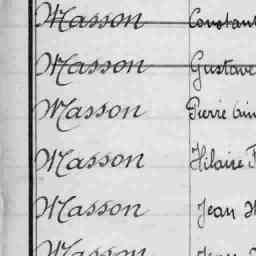 Masson Constant
Masson Gustave
Masson Pierre
Masson Hilaire
Masson Jean
Masson Jean